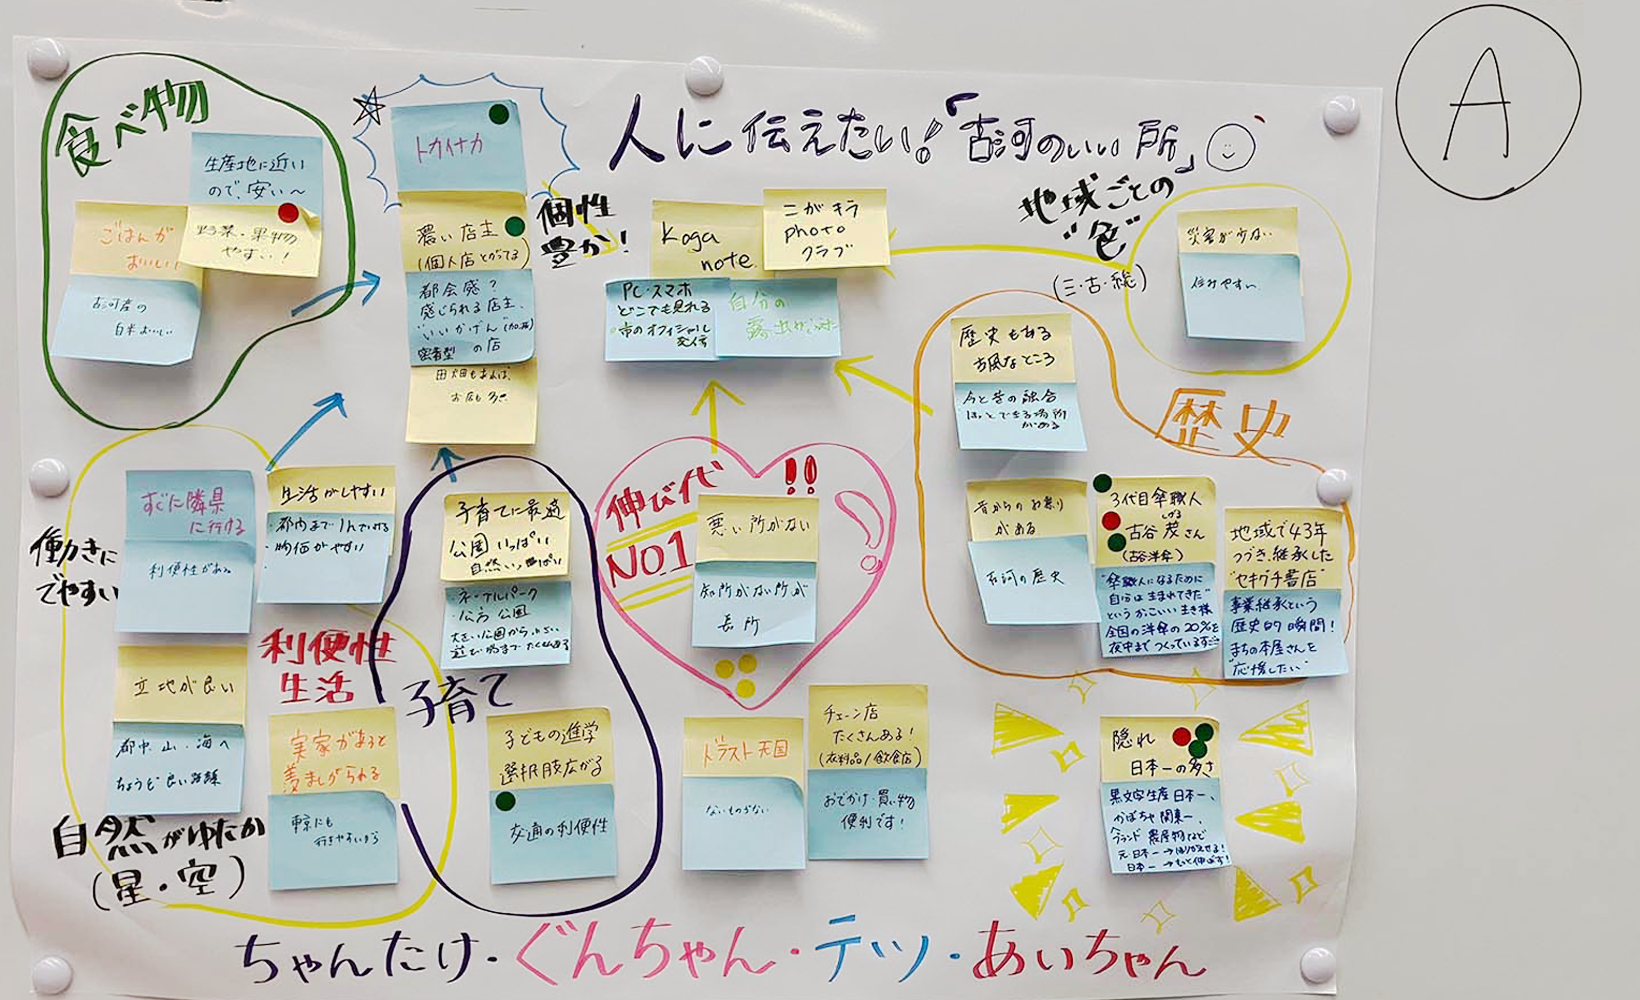 A
人に伝えたい!「古河のいい所」
食べ物
生産地に近い
ので、安い〜
ごはんが
おいしい!
野菜・果物
やすい!
古河産の
お米おいしい
トカイナカ
濃い店主
(個人店とがってる)
都会感?
感じられる店主、
"いいかげん"
密着型の店
田畑もあれば、
お店も多き
個性
豊か!
Koga
note.
こがキラ
photo
クラブ
PC・スマホ
どこでも見れる
市のオフィシャル
自分の
地域ごとの
"色"
(三・古・総)
災害が少ない
住みやすい
歴史もある
古風なところ
今と昔の融合
ほっとできる場所
がある
歴史
昔からのお祭り
がある
古河の歴史
3代目傘職人
しげる
古谷 茂さん
(古谷洋傘)
"傘職人になるために
自分は生まれてきた"
というかこいい生き様
全国の洋傘の20%を
夜中までつくっているすごさ
地域で43年
つづき、継承した
"セキグチ書店"
事業継承という
歴史的瞬間!
まちの本屋さんを
"応援したい"
働きに
でやすい
すぐに隣県
に行ける
利便性がある
生活がしやすい
・都内まで1hで行ける
・物価がやすい
利便性
生活
立地が良い
都内、山・海へ
ちょうど良い距離
実家があると
羨ましがられる
東京にも
行きやすいから
自然がゆたか
(星・空)
子育てに最適
公園いっぱい
自然いっぱい
・ネーブルパーク
・公方公園
大きい公園から小さい
遊び場まで たくさんある
子育て
子どもの進学
選択肢広がる
交通の利便性
伸び代
NO1
!!
悪い所がない
短所がない所が
長所
ドラスト天国
ないものがない
チェーン店
たくさんある!
(衣料品/飲食店)
おでかけ・買い物
便利です!
隠れ
日本一の多さ
かぼちゃ関東一、
ブランド農産物など
元日本一→ほりかえせる!
日本一→もっと伸ばす!
ちゃんたけ・ぐんちゃん・テツ・あいちゃん